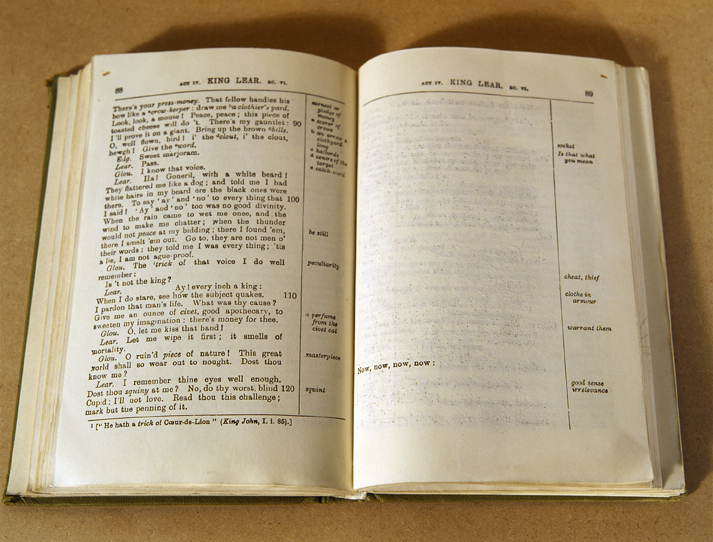 88 ACT IV. KING LEAR. SC. VI.
There's your press-money. That fellow handles his
bow like a crow-keper: draw me a clothier's yard.
Look, look, a mouse! Peace, peace; this piece of
toasted cheese will do't. There's my gauntlet: 90
I'll prove it on a giant. Bring up the brown bills.
O, well flown, bird! i' the clout, i' the clout,
hewgh! Give the word.
Edg. Sweet marjoram.
Lear. Pass.
Glou. I know that voice.
Lear. Ha! Goneril, with a white beard!
They flattered me like a dog; and told me I had
white hairs in my beard ere the black ones were
there. To say 'ay' and 'no' to every thing that 100
I said! 'Ay' and 'no' too was no good divinity.
When the rain came to wet me once, and the
wind to make me chatter; when the thunder
would not peace at my bidding; there I found 'em,
there I smelt 'em out. Go to, they are not men o'
their words: they told me I was every thing; 'tis
a lie, I am not ague-proof.
Glou. The ¹trick of that voice I do well
remember:
Is't not the king?
Lear. Ay! every inch a king:
When I do stare, see how the subject quakes. 110
I pardon that man's life. What was thy cause?
Give me an ounce of civet, good apothecary, to
sweeten my imagination: there's money for thee.
Glou. O, let me kiss that hand!
Lear. Let me wipe it first; it smells of
mortality.
Glou. O ruin'd piece of nature! This great
world shall so wear out to nought. Dost thou
know me?
Lear. I remember thine eyes well enough.
Dost thou squiny at me? No, do thy worst, blind 120
Cupid; I'll not love. Read thou this challenge;
mark but the penning of it.
earnest or
pledge of
money
a scarer of
crows
b an arrow a
clothyard
long
c halberds
d centre of the
target
e catch word
be still
peculiarity
a perfume
from the
civet cat
masterpiece
squint
¹ ["He hath a trick of Cœur-de-Lion" (King John, I. i. 85).]
ACT IV. KING LEAR. SC. VI. 89
Now, now, now, now:
socket
Is that what
you mean
cheat, thief
clothe in
armour
warrant them
good sense
irrelevance